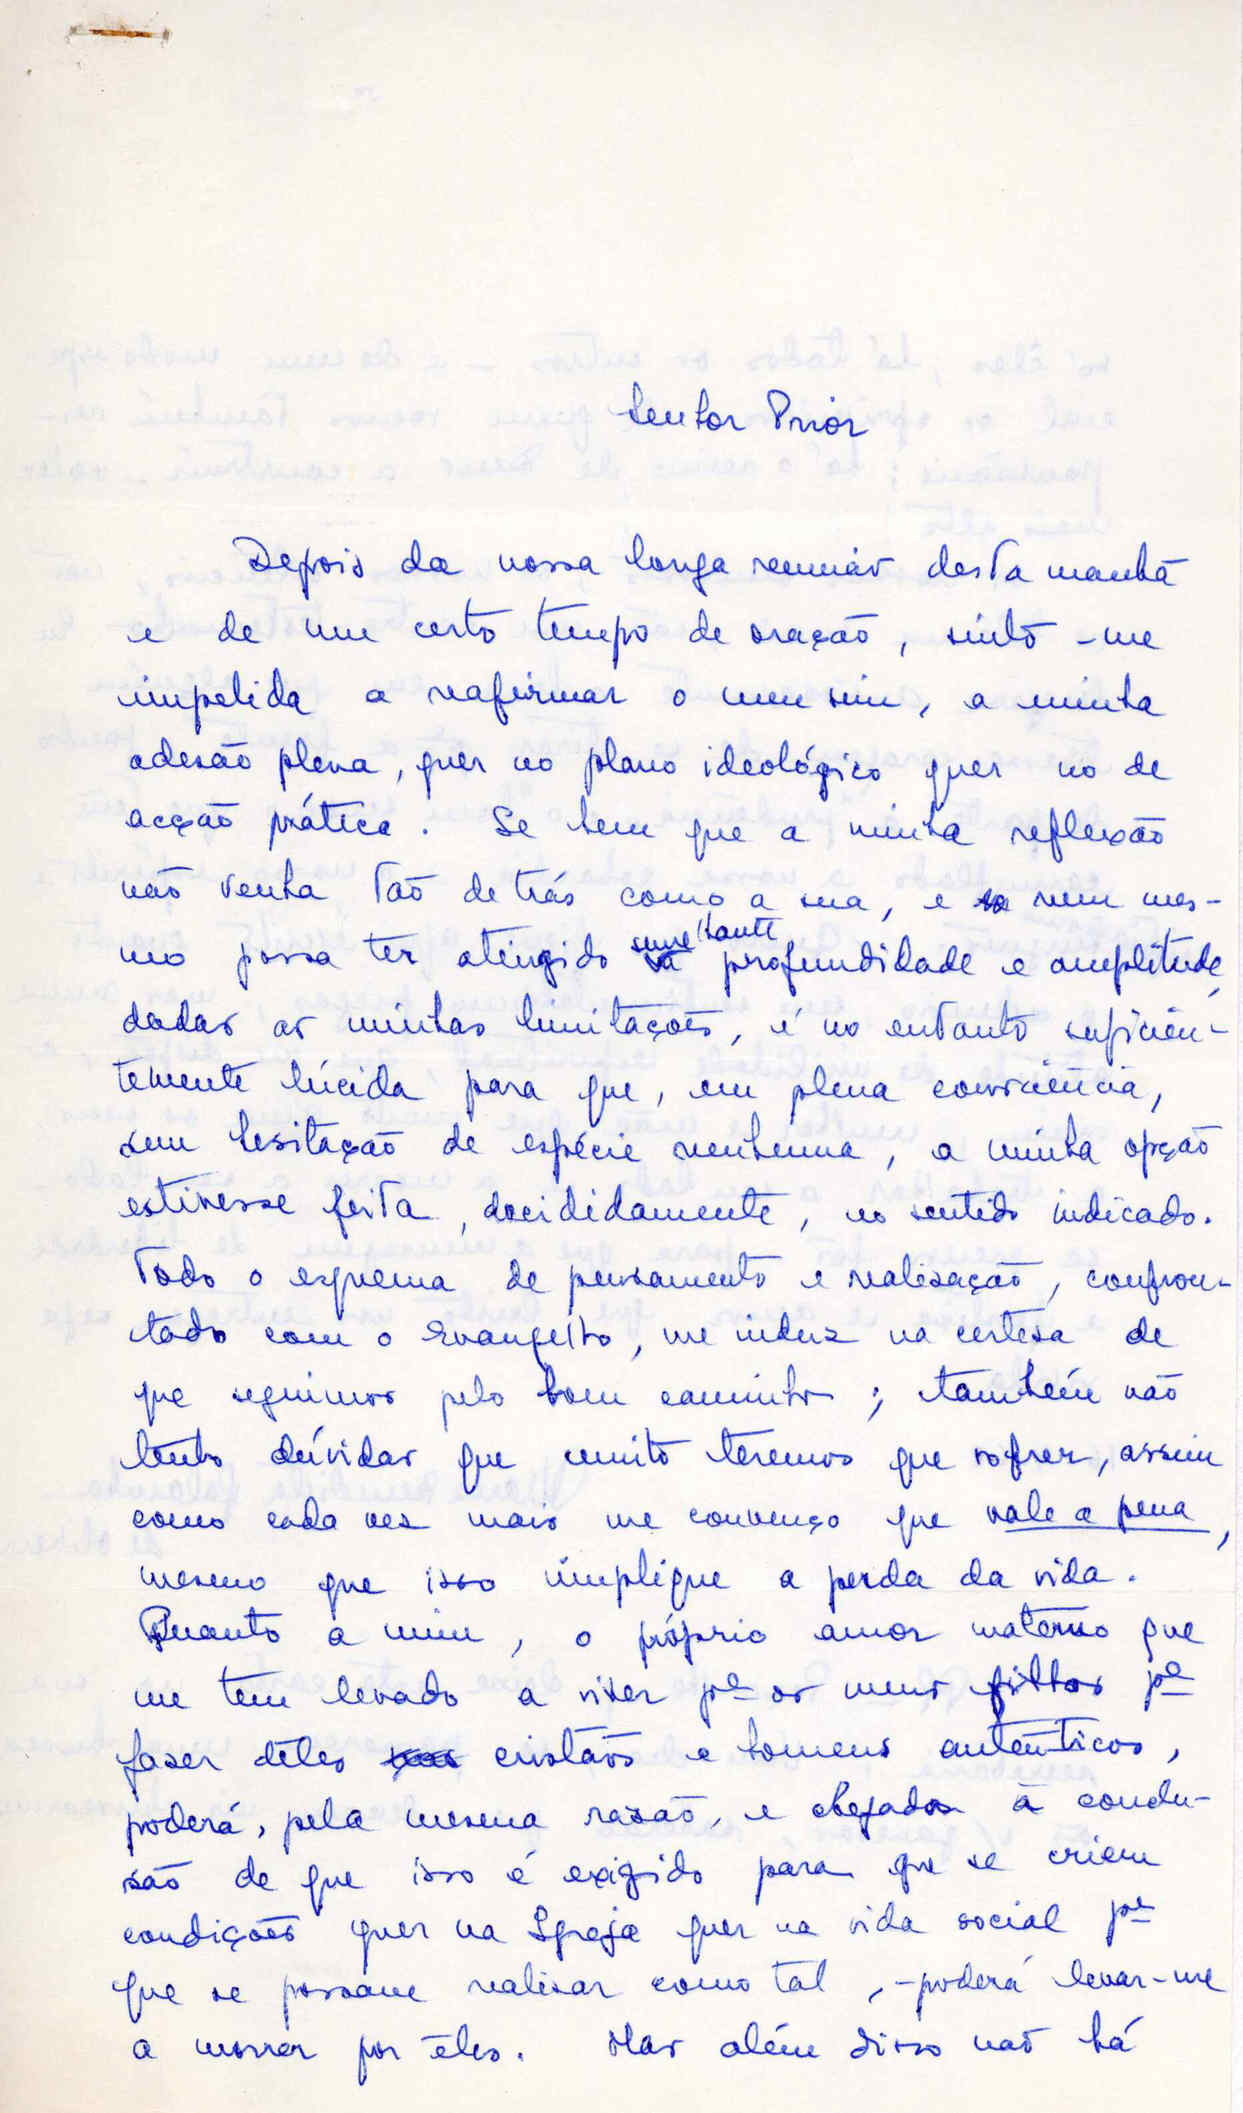 Senhor Prior
Depois da nossa longa reunião desta manhã
e de um certo tempo de oração, sinto-me
impelida a reafirmar o meu sim, a minha
adesão plena, quer no plano ideológico quer no de
acção prática. Se bem que a minha reflexão
não venha tão de trás como a sua, e nem mes-
mo possa ter atingido bastante profundidade e amplitude,
dadas as minhas limitações, é no entanto suficien-
temente lúcida para que, em plena consciência,
sem hesitação de espécie nenhuma, a minha opção
estivesse feita, decididamente, no sentido indicado.
Todo o esquema de pensamento e realisação, confron-
tado com o Evangelho, me induz na certeza de
que seguimos pelo bom caminho; também não
tenho dúvidas que muito teremos que sofrer, assim
como cada vez mais me convenço que vale a pena,
mesmo que isso implique a perda da vida.
Quanto a mim, o próprio amor materno que
me tem levado a viver pª os meus filhos pª
fazer dêles cristãos e homens autênticos,
poderá, pela mesma razão, e chegados à conclu-
são de que isso é exigido para que se criem
condições quer na Igreja quer na vida social pª
que se possam realisar como tal, -poderá levar-me
a morrer por êles. Mas além disso não há